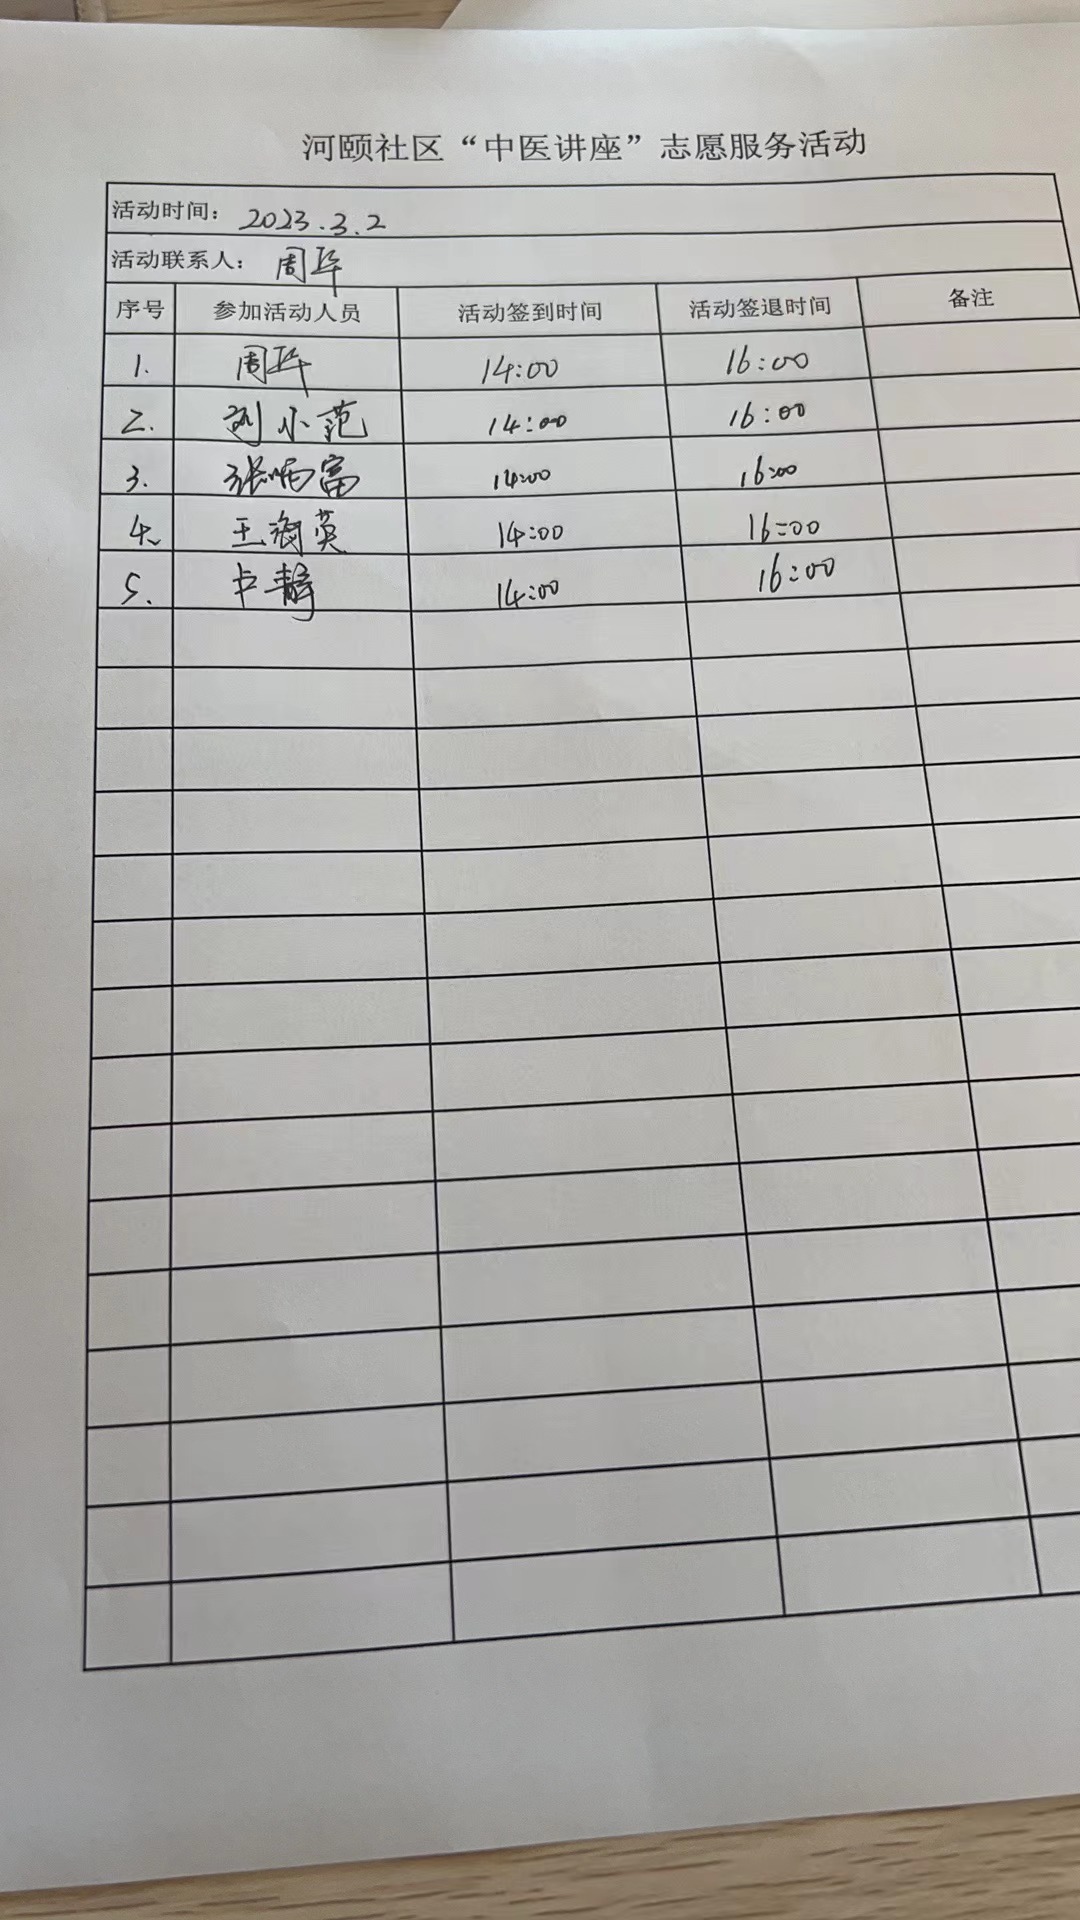 河颐社区“中医讲座”志愿服务活动
活动时间： 2023.3.2
活动联系人： 周
序号 参加活动人员 活动签到时间 活动签退时间 备注
1. 周 14:00 16:00
2. 刘小范 14:00 16:00
3. 张炳富 14:00 16:00
4. 王海英 14:00 16:00
5. 卢静 14:00 16:00